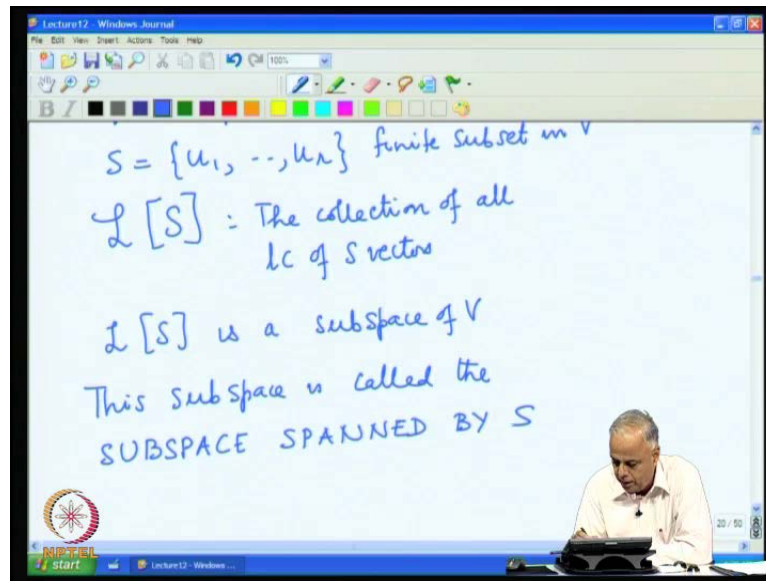 Lecture12 - Windows Journal
File Edit View Insert Actions Tools Help
100%
B I
S = {u₁, --, uᵣ} finite subset in V
L [S] : The collection of all
lc of S vectors
L [S] is a subspace of V
This subspace is called the
SUBSPACE SPANNED BY S
20 / 50
NPTEL
start
Lecture12 - Windows ...